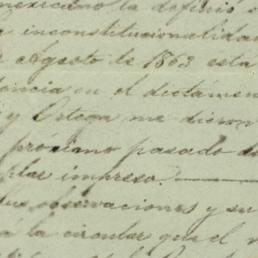 mexicano la definió
inconstitucionalidad
Agosto de 1863 esta
en el dictamen
y Ortega me dieron
próximo pasado
impreso.
observaciones y su
á la circular que el